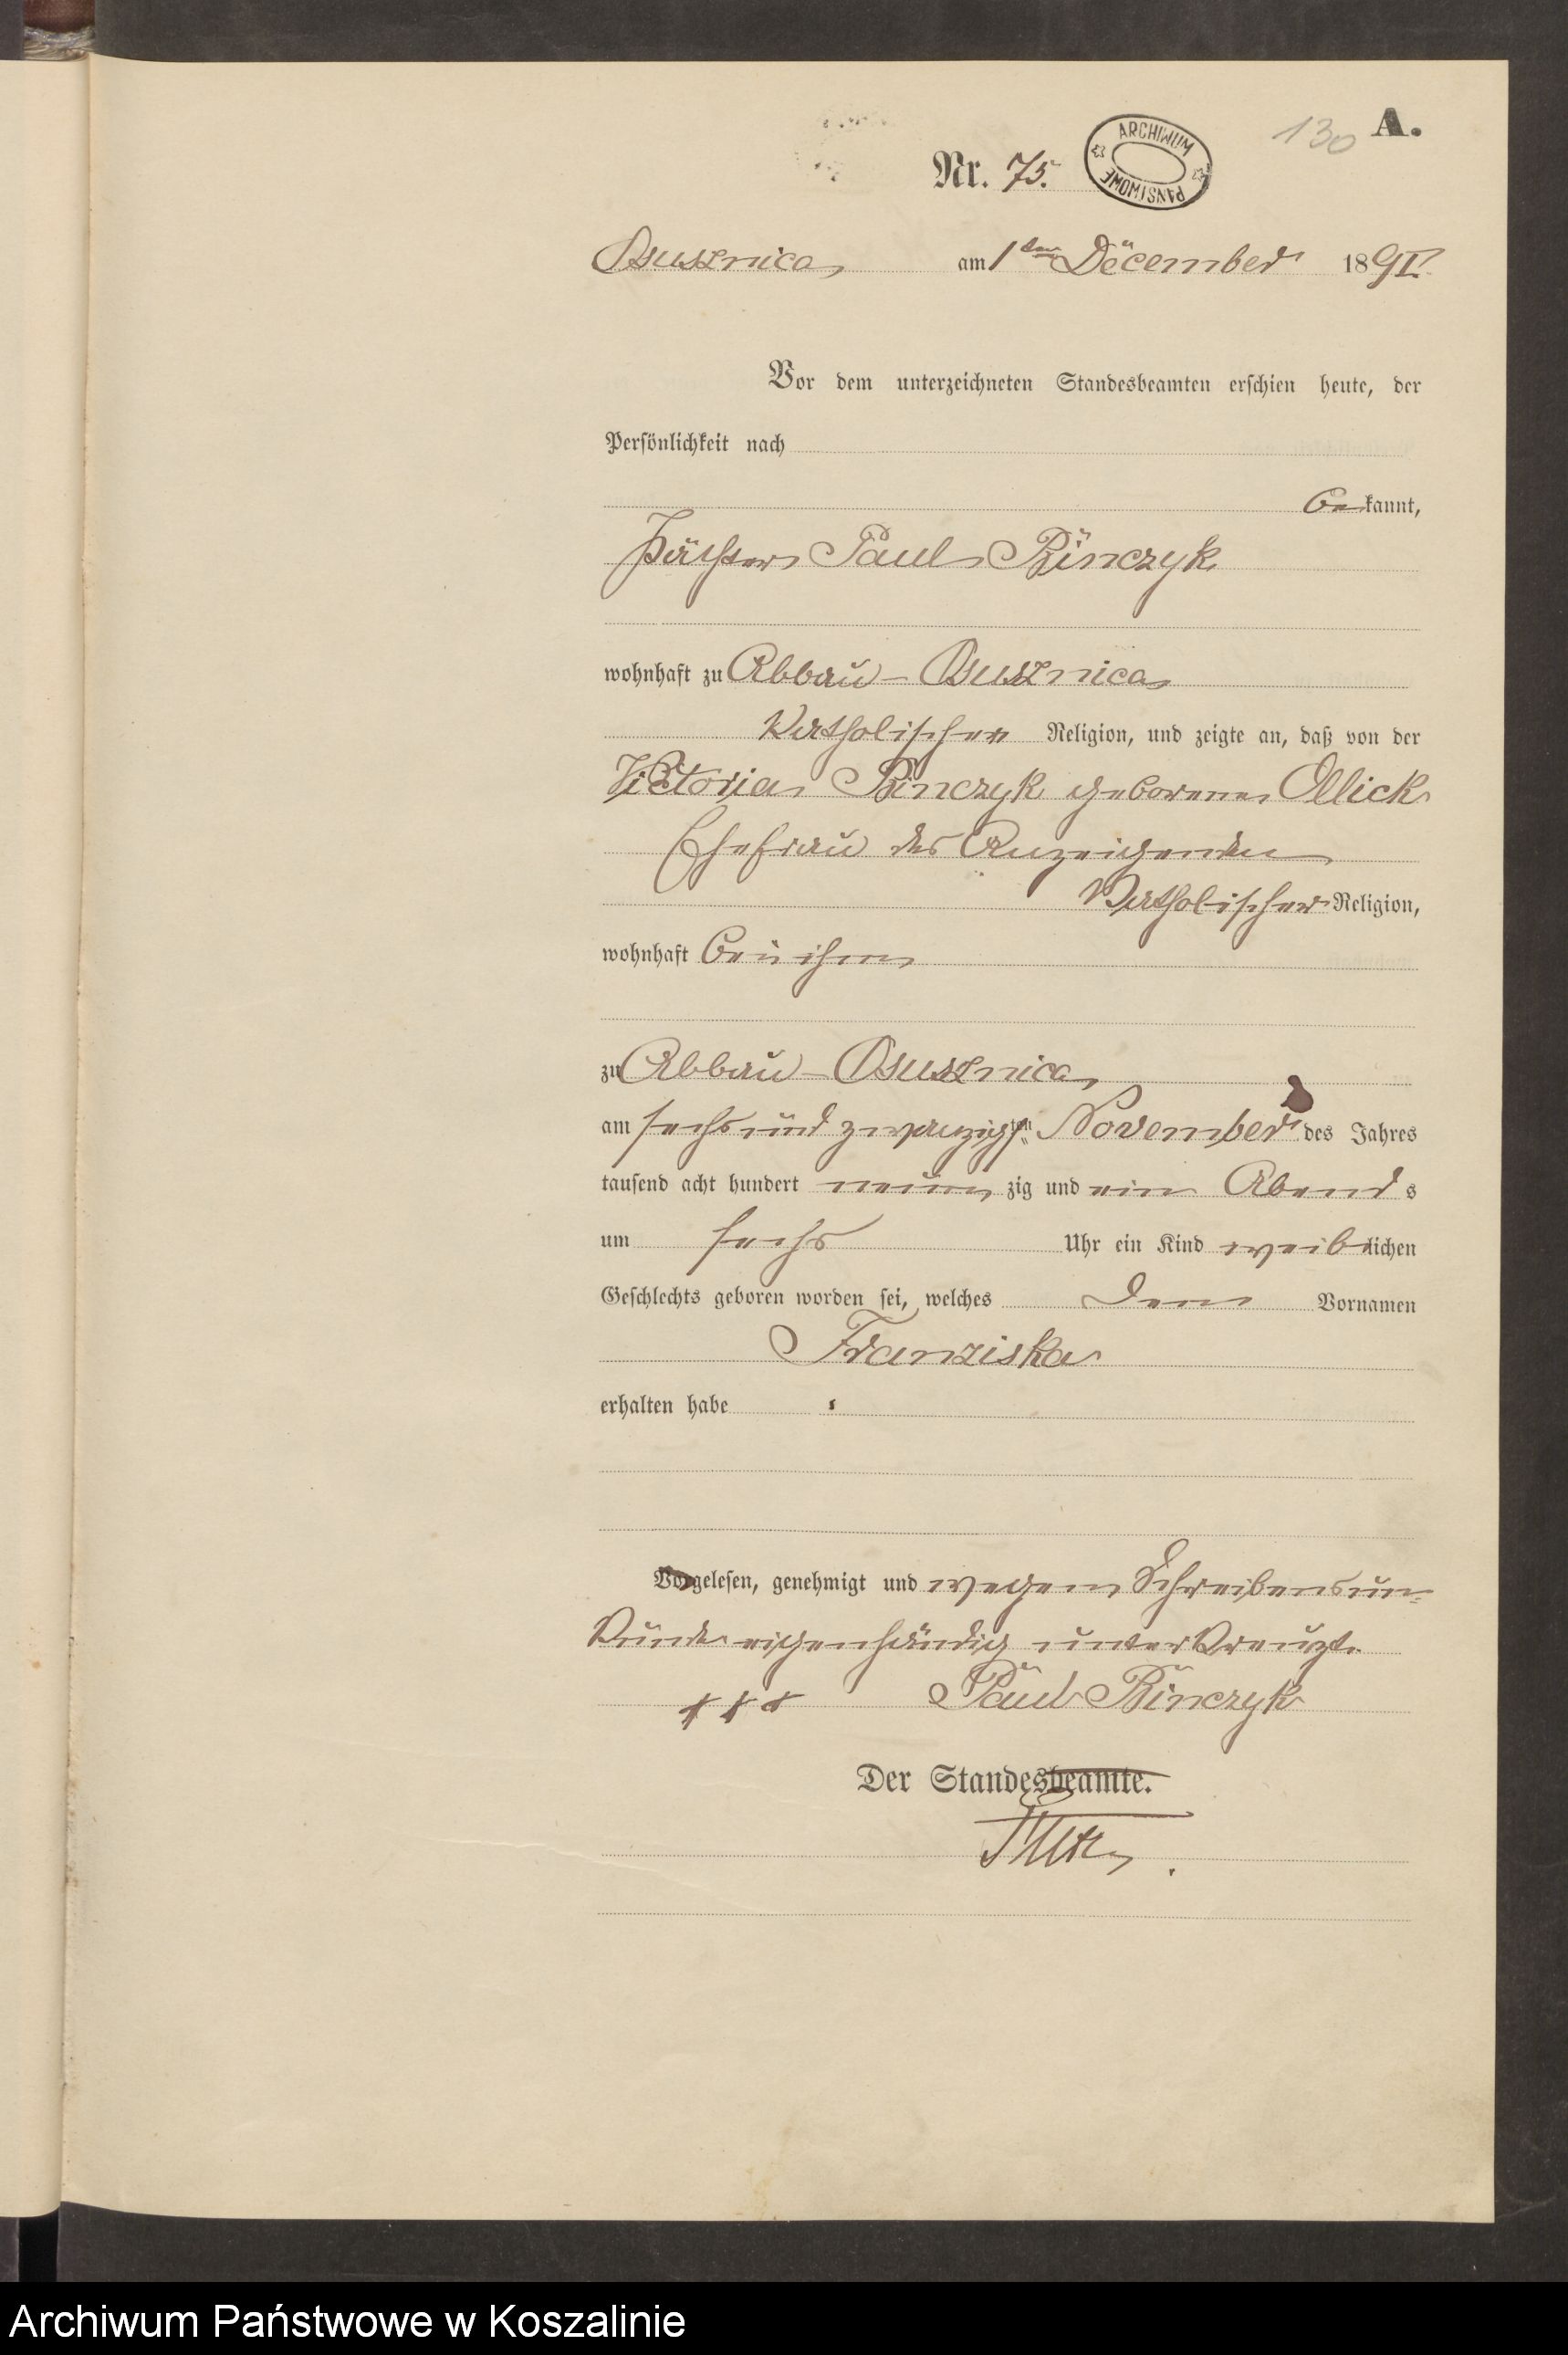 130 A.
Nr. 75.
ARCHIWUM PAŃSTWOWE
Osusznica am 1ten December 1891.
Vor dem unterzeichneten Standesbeamten erschien heute, der
Persönlichkeit nach
bekannt,
Pächter Paul Binczyk
wohnhaft zu Abbau-Osusznica
katholischer Religion, und zeigte an, daß von der
Victoria Binczyk geborene Ollick
Ehefrau des Anzeigenden
katholischer Religion,
wohnhaft bei ihm
zu Abbau-Osusznica
am sechs und zwanzigsten November des Jahres
tausend acht hundert neun zig und ein Abends
um sechs Uhr ein Kind weiblichen
Geschlechts geboren worden sei, welches den Vornamen
Franziska
erhalten habe.
Vorgelesen, genehmigt und wegen Schreibensun-
kunde eigenhändig unterkreuzt.
+++ Paul Binczyk
Der Standesbeamte.
Archiwum Państwowe w Koszalinie